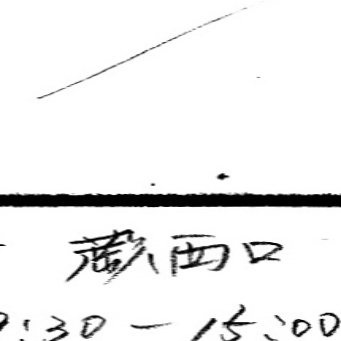 蕨西口
:30 ー 15:00